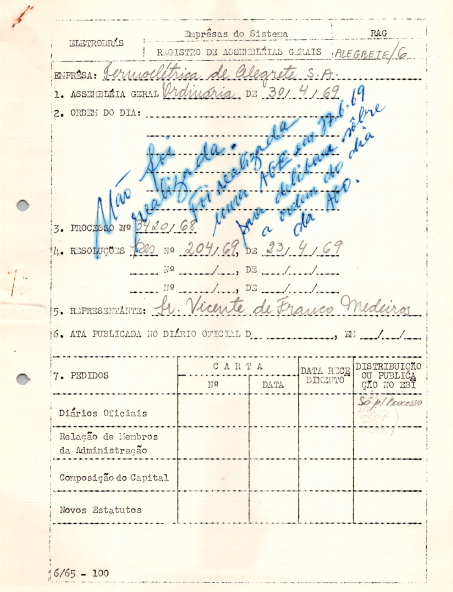 ELETROBRÁS
Emprêsas do Sistema
REGISTRO DE ASSEMBLÉIAS GERAIS
RAG
ALEGRETE/6
EMPRÊSA: Termoelétrica de Alegrete S.A.
1. ASSEMBLÉIA GERAL Ordinária DE 30/4/69
2. ORDEM DO DIA:
Não foi
realizada.
Foi realizada
uma AGE em 27.6.69
para deliberar sôbre
a ordem do dia
da AGO.
3. PROCESSO Nº 0420/68
4. RESOLUÇÕES Nº 204/69, DE 23/4/69
Nº / /, DE / /
Nº / /, DE / /
5. REPRESENTANTE: Sr. Vicente de Franco Medeiros
6. ATA PUBLICADA NO DIÁRIO OFICIAL D , EM / /
7. PEDIDOS
CARTA
Nº
DATA
DATA RECE
BIMENTO
DISTRIBUIÇÃO
OU PUBLICA
ÇÃO NO EBI
Só p/ Processo
Diários Oficiais
Relação de Membros
da Administração
Composição do Capital
Novos Estatutos
6/65 - 100